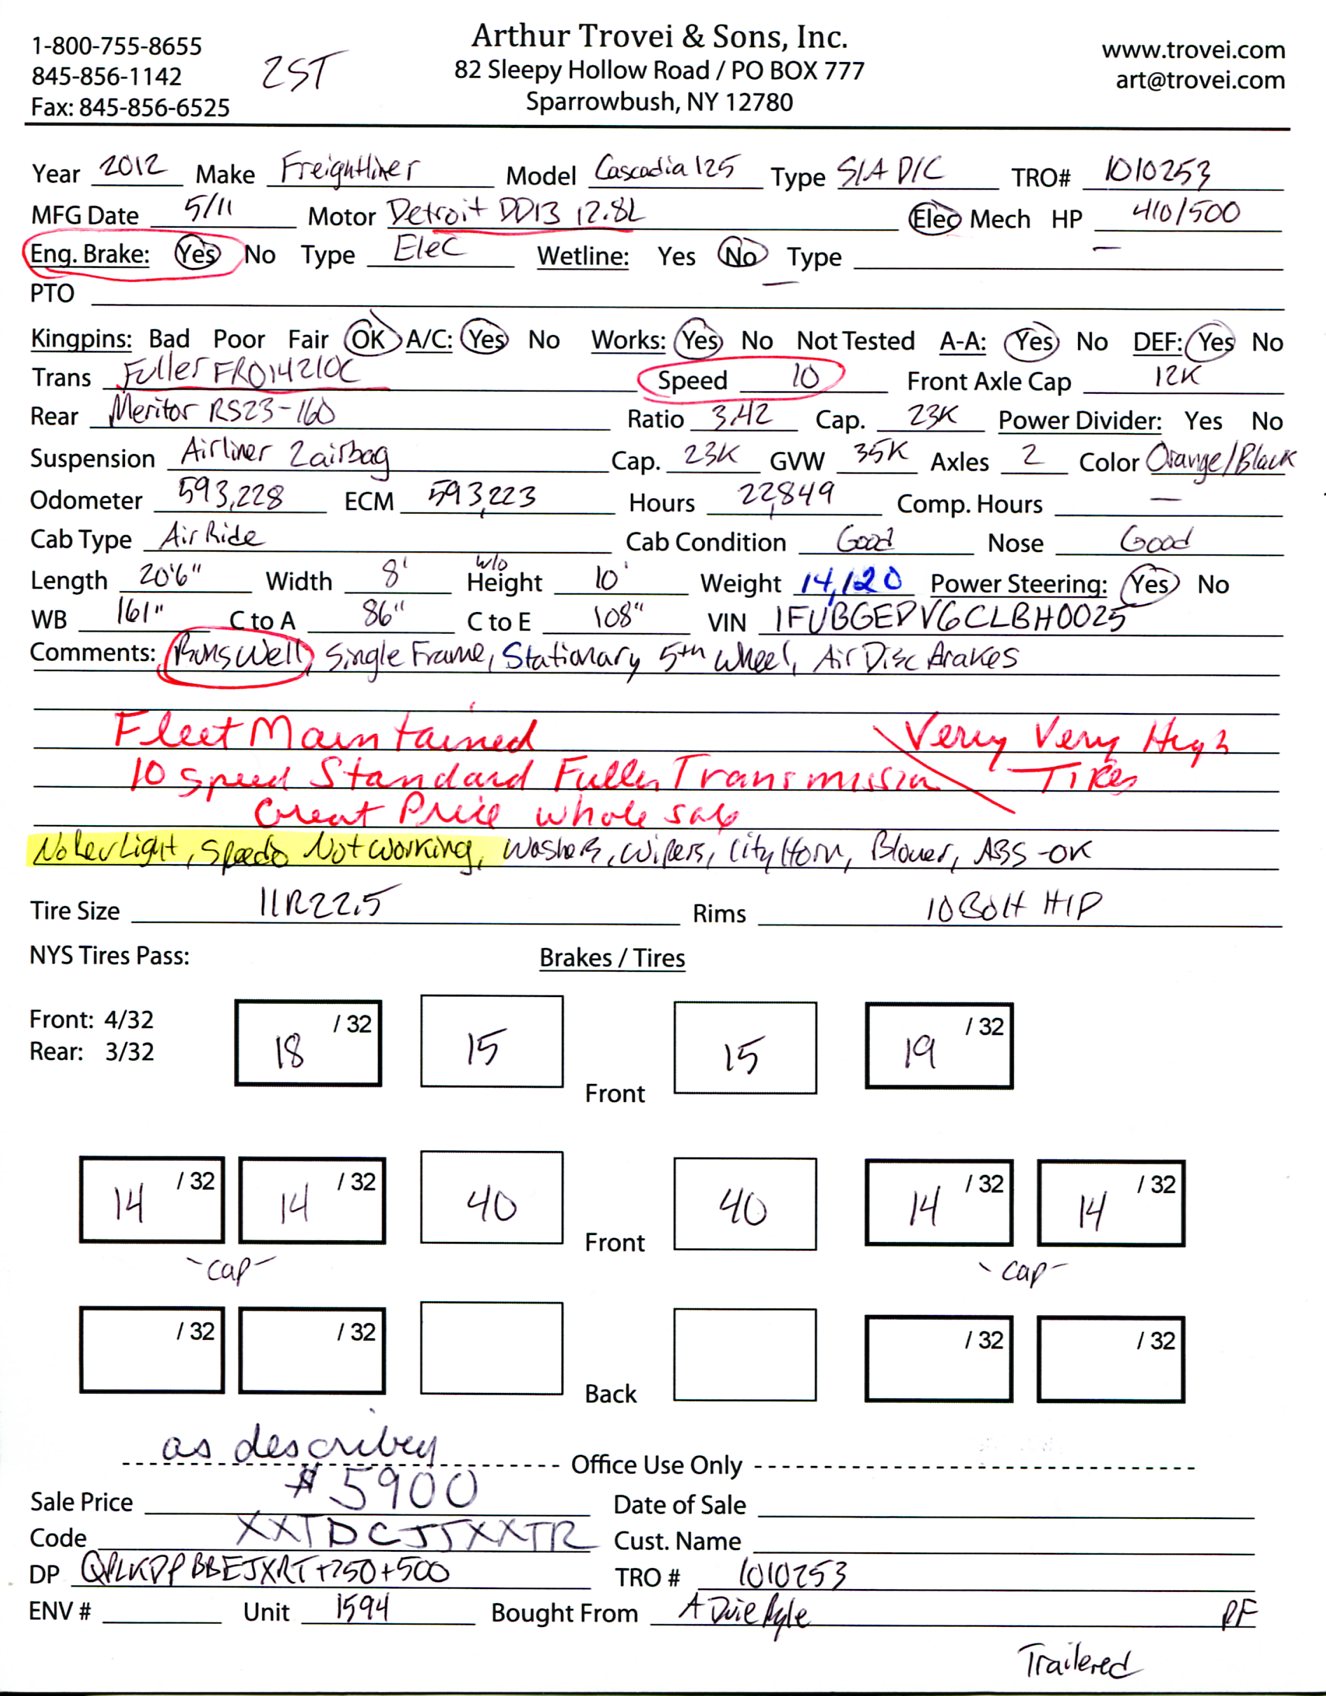 1-800-755-8655
845-856-1142
Fax: 845-856-6525
2ST
Arthur Trovei & Sons, Inc.
82 Sleepy Hollow Road / PO BOX 777
Sparrowbush, NY 12780
www.trovei.com
art@trovei.com
Year 2012 Make Freightliner Model Cascadia 125 Type S/A D/C TRO# 1010253
MFG Date 5/11 Motor Detroit DD13 12.8L Elec Mech HP 410/500
Eng. Brake: Yes No Type Elec Wetline: Yes No Type
PTO
Kingpins: Bad Poor Fair OK A/C: Yes No Works: Yes No Not Tested A-A: Yes No DEF: Yes No
Trans Fuller FRO14210C Speed 10 Front Axle Cap 12K
Rear Meritor RS23-160 Ratio 3.42 Cap. 23K Power Divider: Yes No
Suspension Airliner 2 airbag Cap. 23K GVW 35K Axles 2 Color Orange/Black
Odometer 593,228 ECM 593,223 Hours 22,849 Comp. Hours —
Cab Type Air Ride Cab Condition Good Nose Good
Length 20'6" Width 8' w/o Height 10' Weight 14,120 Power Steering: Yes No
WB 161" C to A 86" C to E 108" VIN 1FUBGEDV6CLBH0025
Comments: Runs Well, Single Frame, Stationary 5th Wheel, Air Disc Brakes
Fleet Maintained Very Very High
10 speed Standard Fuller Transmission Tires
Great Price whole sale
No Rev Light, Speedo Not Working, Washers, Wipers, City Horn, Blower, ABS-OK
Tire Size 11R22.5 Rims 10 Bolt H/P
NYS Tires Pass: Brakes / Tires
Front: 4/32
Rear: 3/32
18 /32 15 Front 15 19 /32
14 /32 14 /32 40 Front 40 14 /32 14 /32
-cap- -cap-
/32 /32 Back /32 /32
as described
Office Use Only
Sale Price $5900 Date of Sale
Code XXTDCJJXXTR Cust. Name
DP QPLKDPBBEJXRT+250+500 TRO # 1010253
ENV # Unit 1594 Bought From A Duie Pyle RF
Trailered